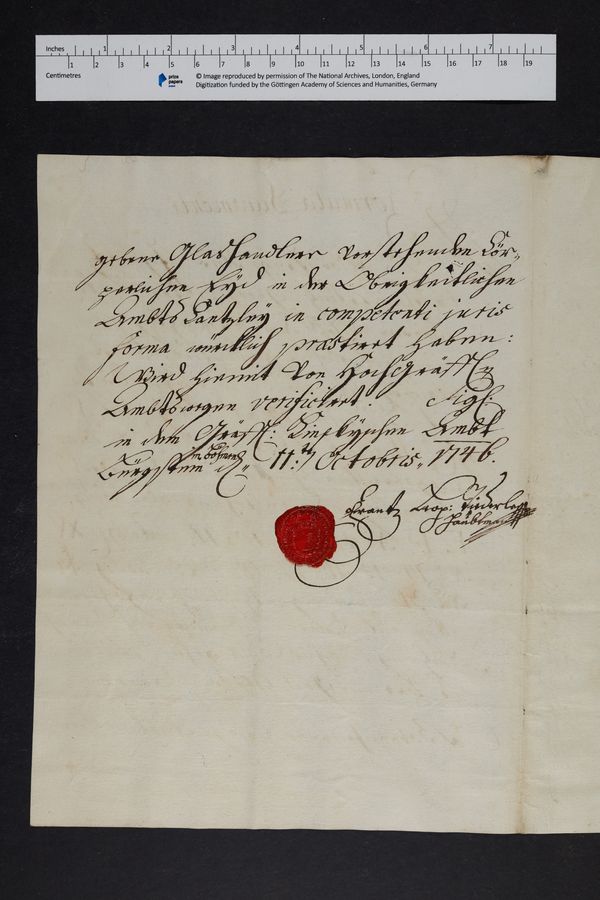 Inches 1 2 3 4 5 6 7
Centimetres 1 2 3 4 5 6 7 8 9 10 11 12 13 14 15 16 17 18 19
prize papers
© Image reproduced by permission of The National Archives, London, England
Digitization funded by the Göttingen Academy of Sciences and Humanities, Germany
gebene Glashandlere vorstehenden Cör-
perlichen Eyd in der Obrigkeitlichen
Ambts Cantzley in competenti juris
forma würcklich præstiret haben:
Wird hiemit von HochGräffl:
Ambtswegen verificiret. Sigl:
in dem Gräffl: Kinskyschen Ambt
Bürgstein in Böhmen d. 11ten Octobris, 1746.
Frantz Leop:
Haubtmann